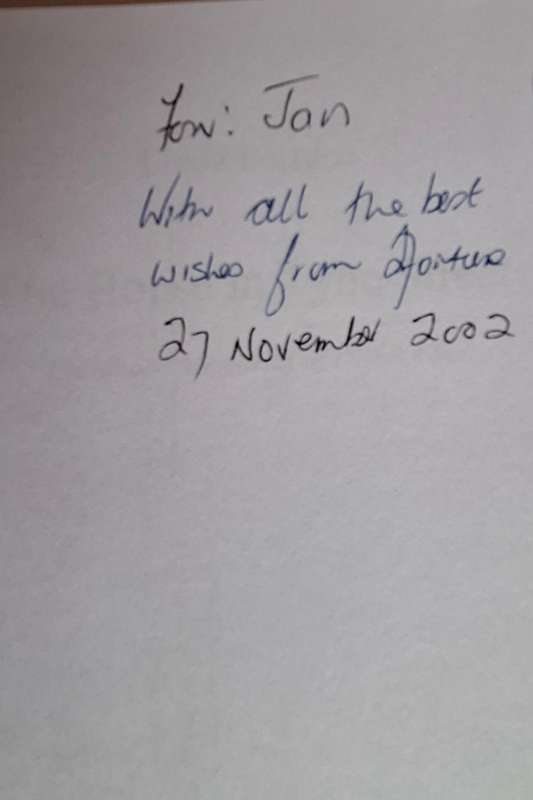 For: Jan
With all the best
wishes from
27 November 2002